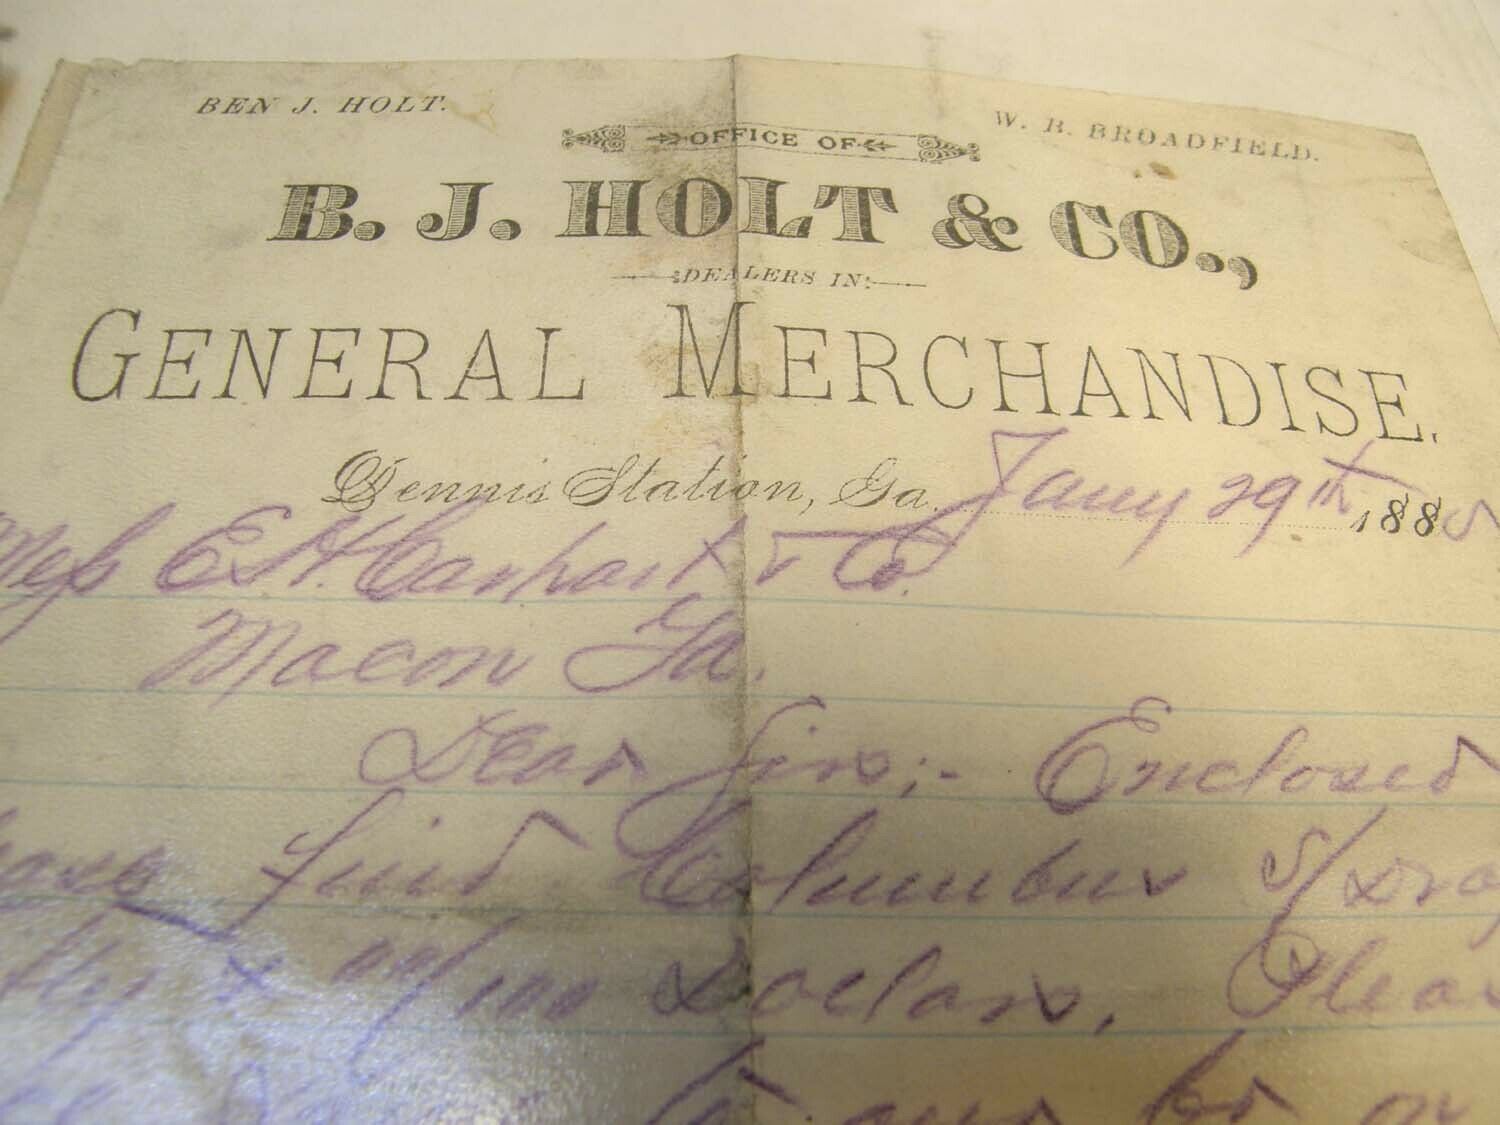 BEN J. HOLT. W. B. BROADFIELD.
OFFICE OF
B. J. HOLT & CO.,
DEALERS IN
GENERAL MERCHANDISE.
Dennis Station, Ga. Jany 29th 1885
Mess E. H. Carhart & Co.
Macon Ga.
Dear Sirs;- Enclosed
find Columbus S/Dra
& 00/100 Dollars, Pleas